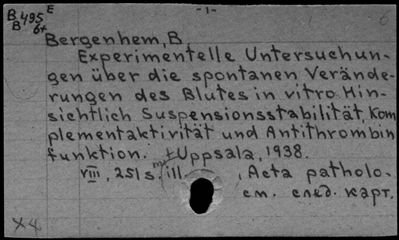 -1-
6
B495E
B6+
Bergenhem, B.
Experimentelle Untersuchun-
gen über die spontanen Verände-
rungen des Blutes in vitro Hin-
sichtlich Suspensionsstabilität, Kom
plementaktivität und Antithrombin
funktion. Uppsala, 1938.
VIII, 251 s. ill. , Acta patholo-
см. след. карт.
X4